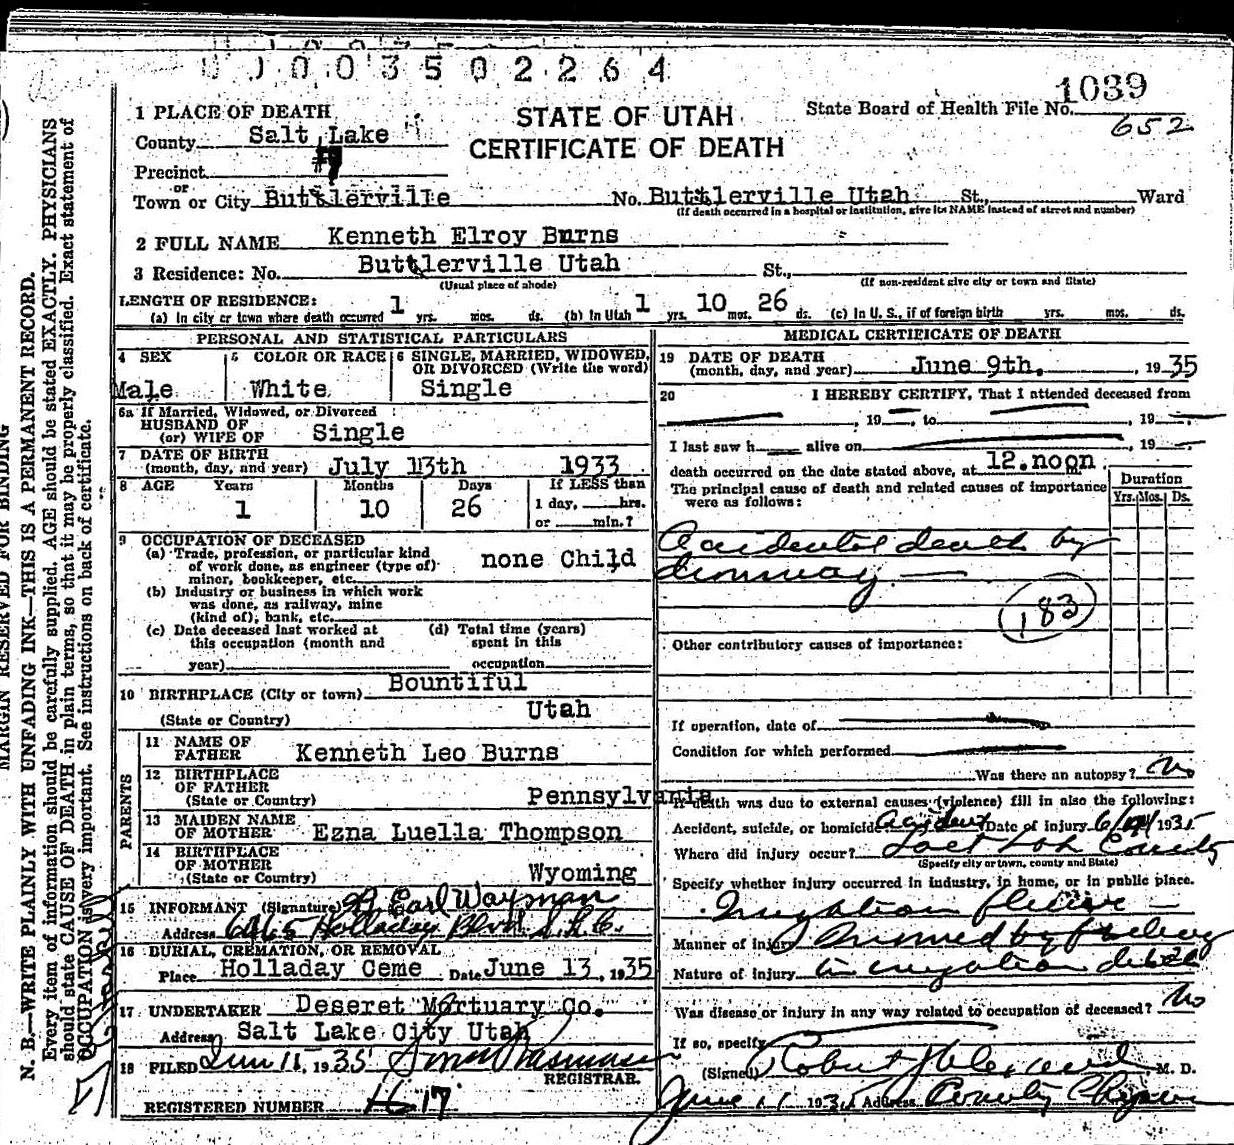 0 0 0 3 5 0 2 2 6 4
1039
1 PLACE OF DEATH
STATE OF UTAH
State Board of Health File No.
652
County Salt Lake
CERTIFICATE OF DEATH
Precinct
or
Town or City Buttlerville No. Buttlerville Utah St., Ward
(If death occurred in a hospital or institution, give its NAME instead of street and number)
2 FULL NAME Kenneth Elroy Burns
3 Residence: No. Buttlerville Utah St.,
(Usual place of abode) (If non-resident give city or town and State)
LENGTH OF RESIDENCE:
(a) In city or town where death occurred 1 yrs. mos. ds. (b) In Utah 1 yrs. 10 mos. 26 ds. (c) In U. S., if of foreign birth yrs. mos. ds.
PERSONAL AND STATISTICAL PARTICULARS
4 SEX
Male
5 COLOR OR RACE
White
6 SINGLE, MARRIED, WIDOWED,
OR DIVORCED (Write the word)
Single
6a If Married, Widowed, or Divorced
HUSBAND OF
(or) WIFE OF Single
7 DATE OF BIRTH
(month, day, and year) July 13th 1933
8 AGE Years Months Days If LESS than
1 10 26 1 day, hrs.
or min.?
9 OCCUPATION OF DECEASED
(a) Trade, profession, or particular kind
of work done, as engineer (type of) none Child
minor, bookkeeper, etc.
(b) Industry or business in which work
was done, as railway, mine
(kind of), bank, etc.
(c) Date deceased last worked at
this occupation (month and
year)
(d) Total time (years)
spent in this
occupation
10 BIRTHPLACE (City or town) Bountiful
(State or Country) Utah
PARENTS
11 NAME OF
FATHER Kenneth Leo Burns
12 BIRTHPLACE
OF FATHER
(State or Country) Pennsylvania
13 MAIDEN NAME
OF MOTHER Ezna Luella Thompson
14 BIRTHPLACE
OF MOTHER
(State or Country) Wyoming
15 INFORMANT (Signature) Earl Wayman
Address Holladay Blvd. S.L.C.
16 BURIAL, CREMATION, OR REMOVAL
Place Holladay Ceme Date June 13, 1935
17 UNDERTAKER Deseret Mortuary Co.
Address Salt Lake City Utah
18 FILED Jun 15, 1935 Rasmussen
REGISTRAR.
REGISTERED NUMBER
MEDICAL CERTIFICATE OF DEATH
19 DATE OF DEATH
(month, day, and year) June 9th, 1935
20 I HEREBY CERTIFY, That I attended deceased from
, 19 , to , 19
I last saw h alive on , 19
death occurred on the date stated above, at 12.noon m.
The principal cause of death and related causes of importance
were as follows:
Duration
Yrs. Mos. Ds.
Accidental death by
drowning
183
Other contributory causes of importance:
If operation, date of
Condition for which performed
Was there an autopsy? No
If death was due to external causes (violence) fill in also the following:
Accident, suicide, or homicide Accident Date of injury 6/ 1935
Where did injury occur? Salt Lake County
(Specify city or town, county and State)
Specify whether injury occurred in industry, in home, or in public place.
Irrigation
Manner of injury Drowned by falling
Nature of injury in irrigation ditch
Was disease or injury in any way related to occupation of deceased? No
If so, specify
(Signed) Robert M. D.
June 11 1935 Address County
MARGIN RESERVED FOR BINDING
N. B.—WRITE PLAINLY WITH UNFADING INK—THIS IS A PERMANENT RECORD.
Every item of information should be carefully supplied. AGE should be stated EXACTLY. PHYSICIANS
should state CAUSE OF DEATH in plain terms, so that it may be properly classified. Exact statement of
OCCUPATION is very important. See instructions on back of certificate.